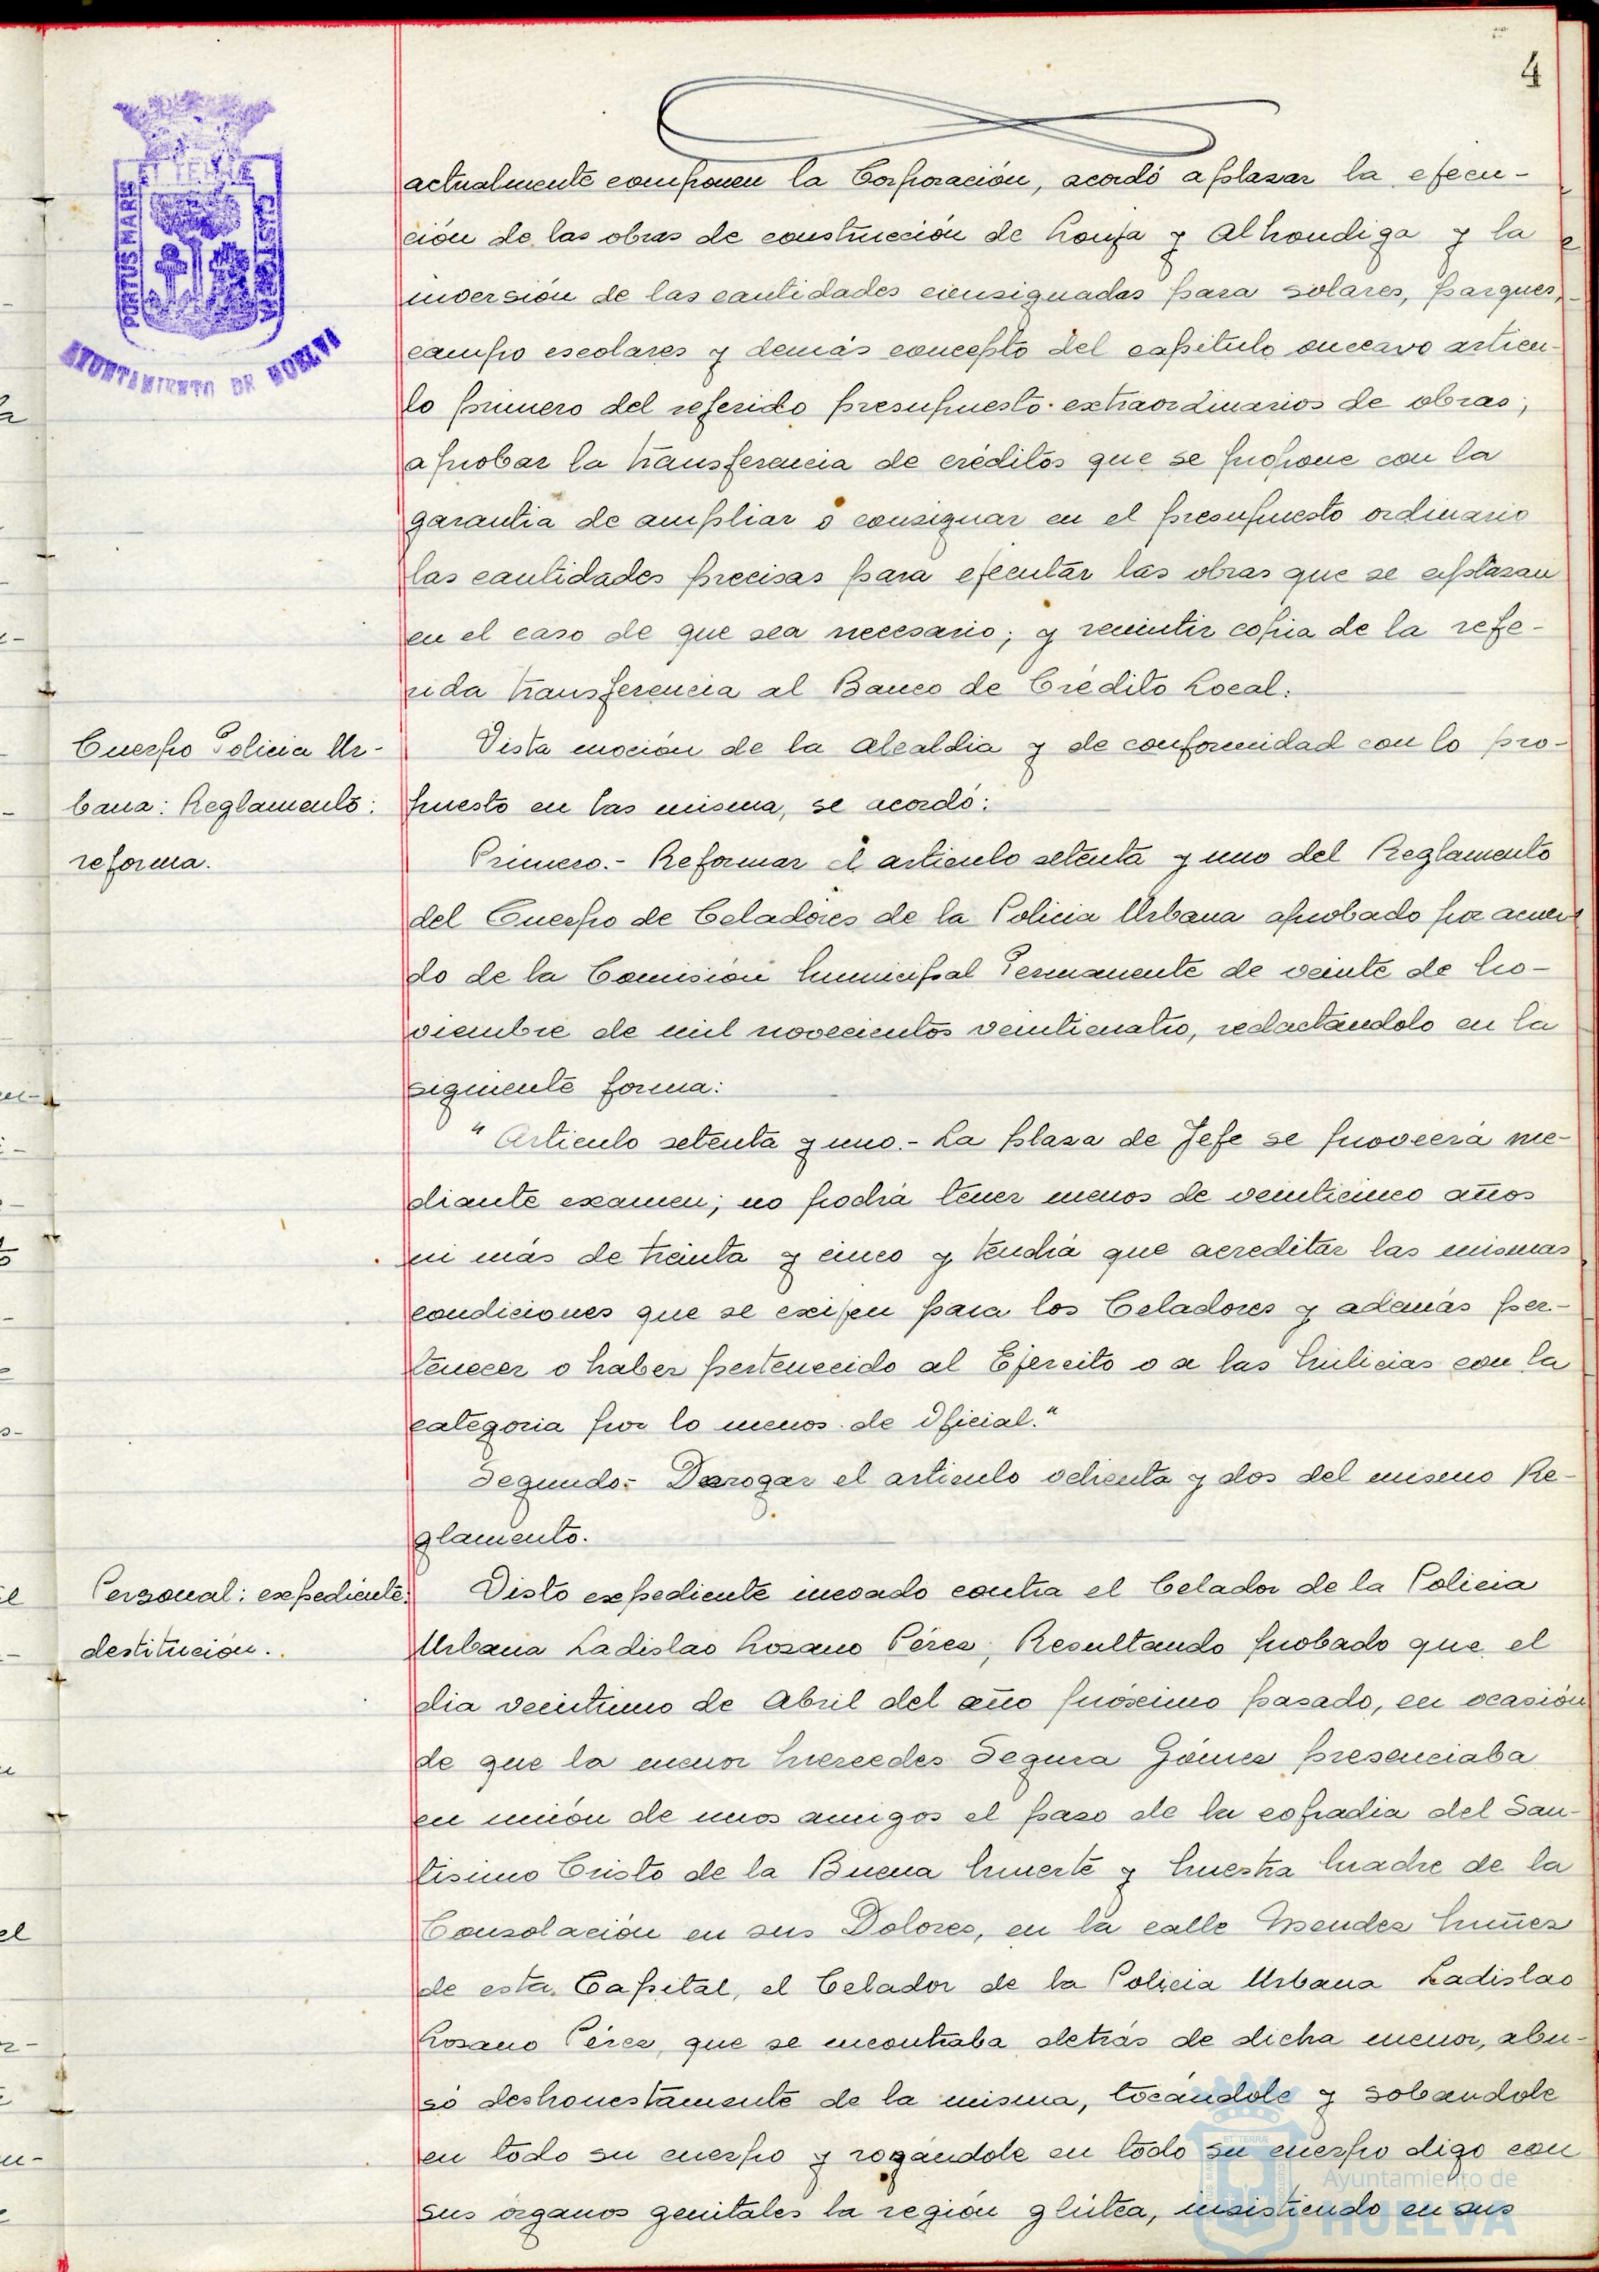 4
PORTUS MARIS ET TERRÆ CUSTODIA
AYUNTAMIENTO DE HUELVA
actualmente componen la Corporación, acordó aplazar la ejecu-
ción de las obras de construcción de Lonja y Alhondiga y la
inversión de las cantidades consignadas para solares, parques,
campo escolares y demás concepto del capitulo onceavo articu-
lo primero del referido presupuesto extraordinarios de obras;
aprobar la transferencia de créditos que se propone con la
garantia de ampliar o consignar en el presupuesto ordinario
las cantidades precisas para ejecutar las obras que se aplazan
en el caso de que sea necesario; y remitir copia de la refe-
rida transferencia al Banco de Crédito Local.
Cuerpo Policia Ur-
bana: Reglamento:
reforma.
Vista moción de la Alcaldia y de conformidad con lo pro-
puesto en las misma, se acordó:
Primero.- Reformar el articulo setenta y uno del Reglamento
del Cuerpo de Celadores de la Policia Urbana aprobado por acuer-
do de la Comisión Municipal Permanente de veinte de No-
viembre de mil novecientos veinticuatro, redactándolo en la
siguiente forma:
"Articulo setenta y uno.- La plaza de Jefe se proveerá me-
diante examen; no podrá tener menos de veinticinco años
ni más de treinta y cinco y tendrá que acreditar las mismas
condiciones que se exijen para los Celadores y además per-
tenecer o haber pertenecido al Ejercito o a las Milicias con la
categoria por lo menos de Oficial."
Segundo.- Derogar el articulo ochenta y dos del mismo Re-
glamento.
Personal: expediente:
destitución.
Visto expediente incoado contra el Celador de la Policia
Urbana Ladislao Lozano Pérez; Resultando probado que el
dia veintiuno de Abril del año próximo pasado, en ocasión
de que la menor Mercedes Segura Gómez presenciaba
en unión de unos amigos el paso de la cofradia del San-
tisimo Cristo de la Buena Muerte y Nuestra Madre de la
Consolación en sus Dolores, en la calle Mendez Nuñez
de esta Capital, el Celador de la Policia Urbana Ladislao
Lozano Pérez, que se encontraba detrás de dicha menor, abu-
só deshonestamente de la misma, tocándole y sobandole
en todo su cuerpo y rogándole en todo su cuerpo digo con
sus órganos genitales la región glútea, insistiendo en sus
Ayuntamiento de
HUELVA